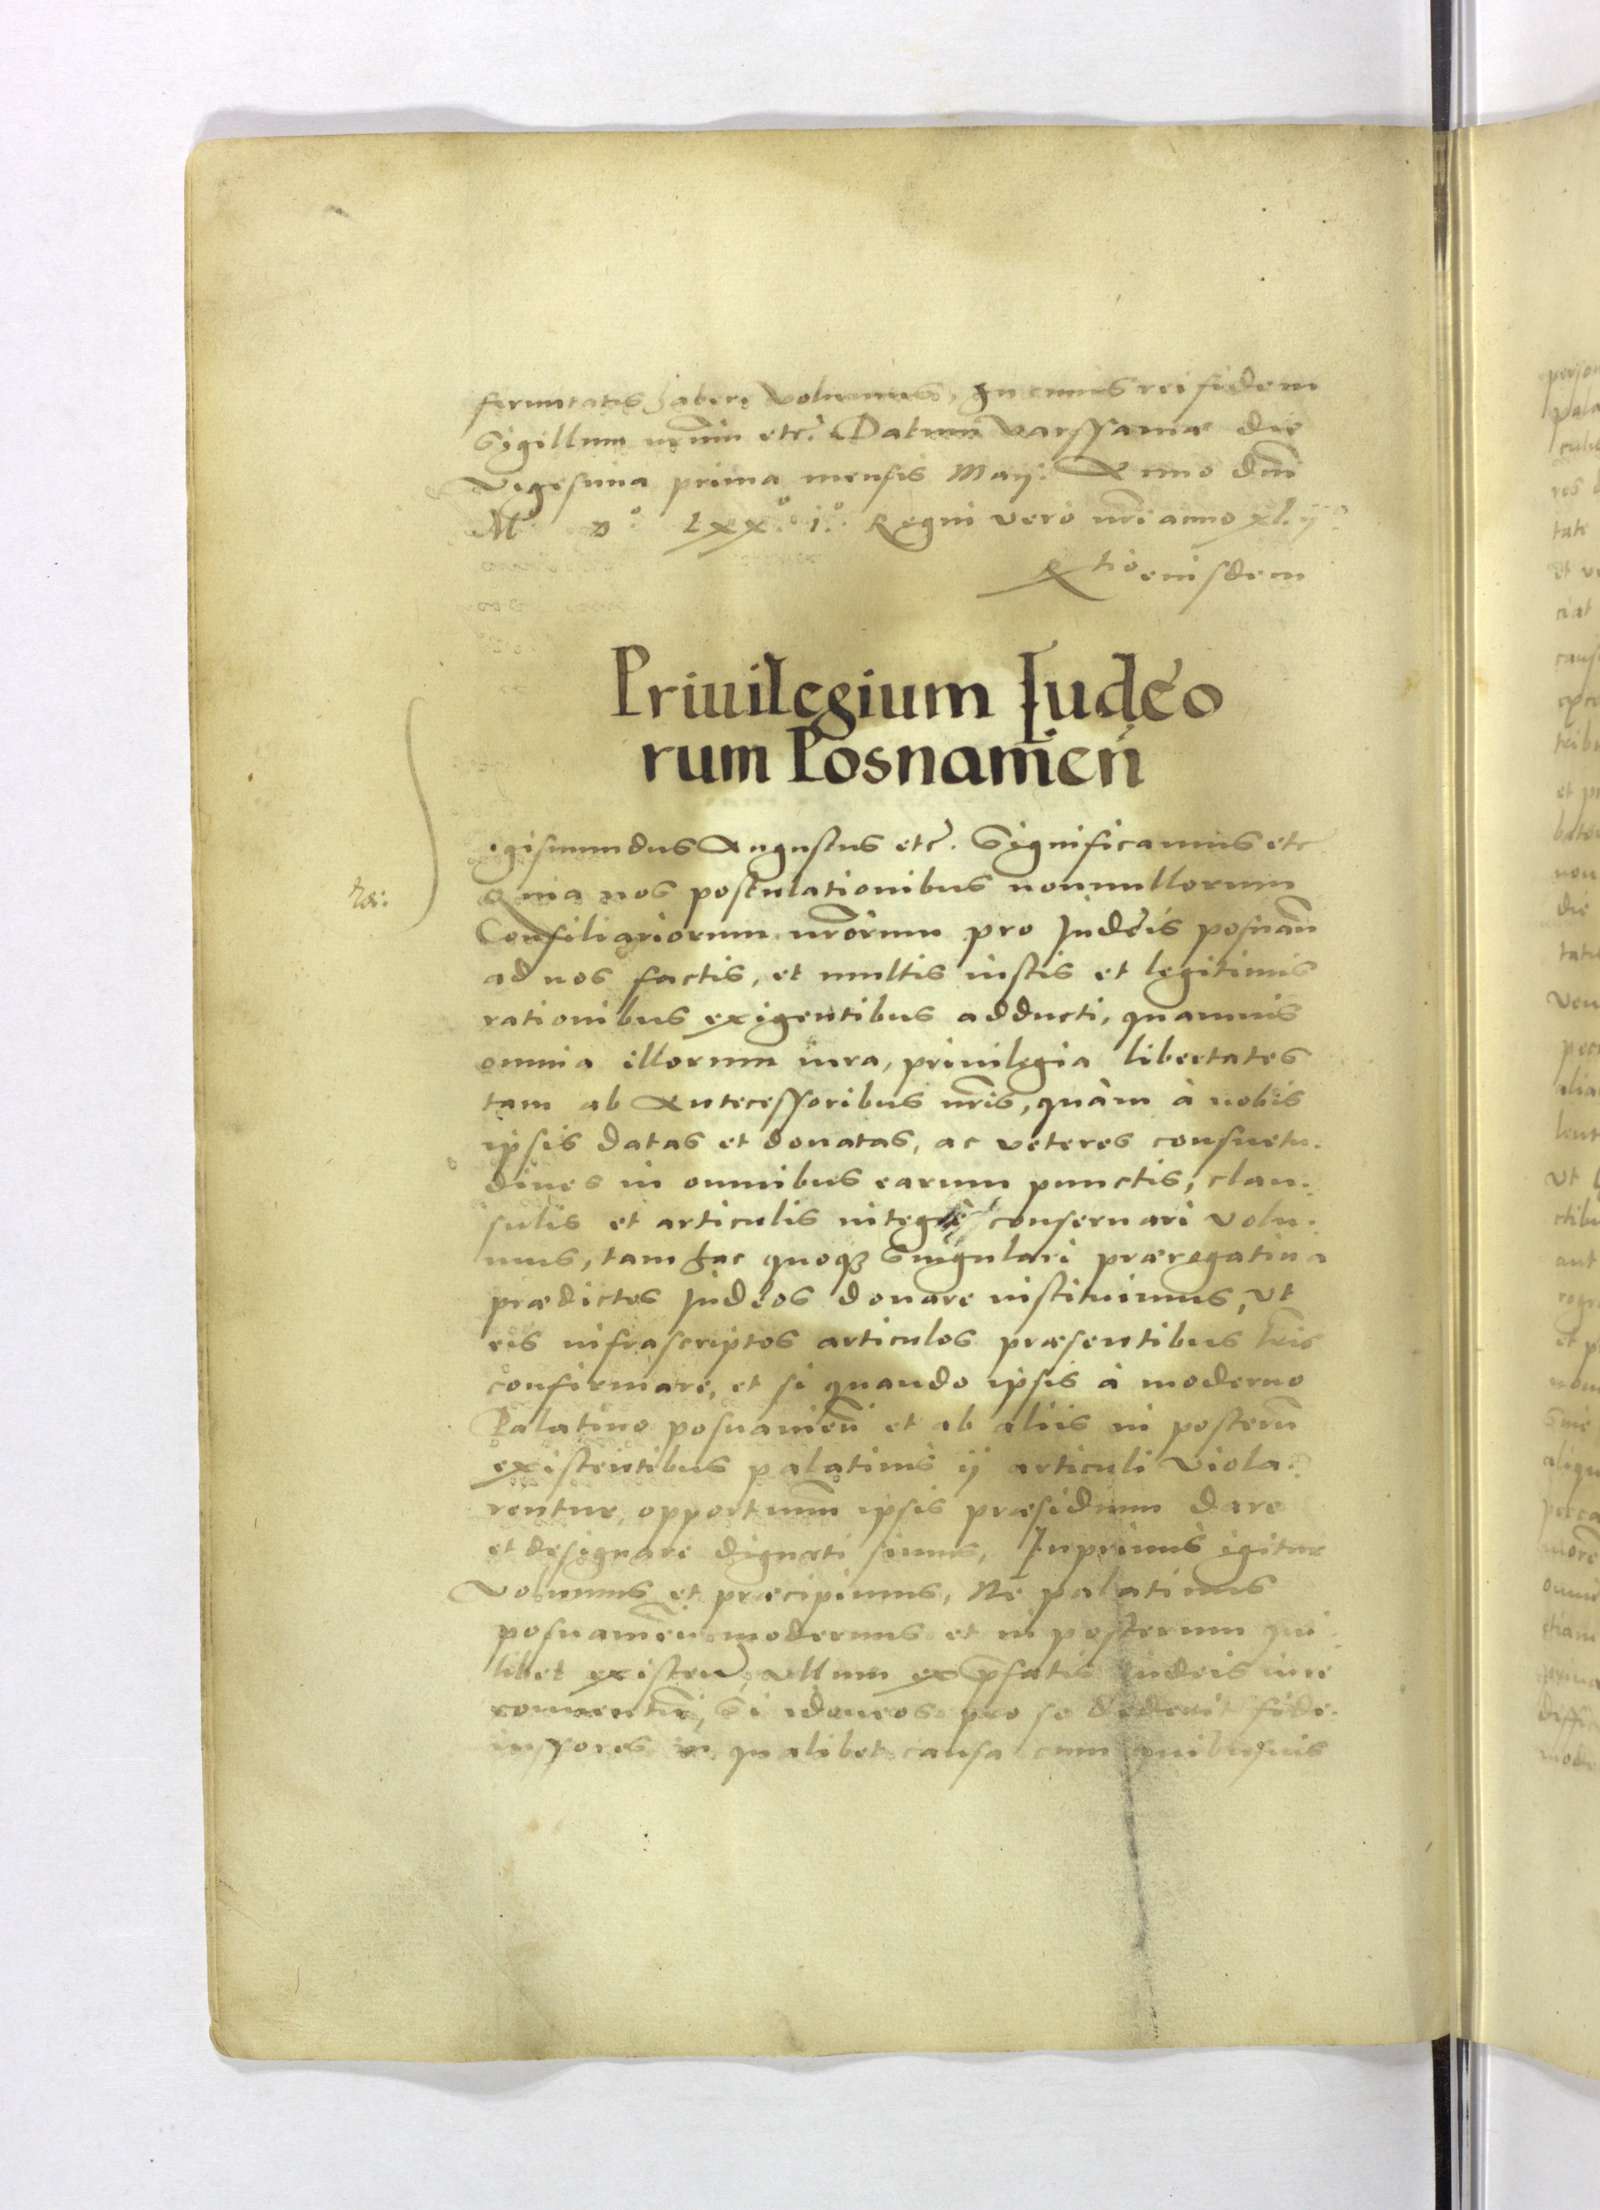 firmitatis habere volumus, In cuius rei fidem
Sigillum nrum etc. Datum Varssaviæ die
Vigesima prima mensis Maij: Anno dni
Mº Dº LXXº iº. Regni vero nri anno xl.ij
Rtio eiusdem
Priuilegium Iudeo
rum Posnamien
igismundus Augustus etc. Significamus etc
Quia nos postulationibus nonnullorum
Consiliariorum nrorum pro Iudeis posnan
ad nos factis, et multis iustis et legitimis
rationibus exigentibus adducti, quamuis
omnia illorum iura, priuilegia libertates
tam ab Antecessoribus nris, quàm à nobis
ipsis datas et donatas, ac veteres consuetu.
dines in omnibus earum punctis, clau.
sulis et articulis integrè conseruari volu.
mus, tam hac quoq3 Singulari præregatiua
prædictos Iudeos donare instituimus, vt
eis infrascriptos articulos præsentibus lris
confirmare, et si quando ipsis à moderno
Palatino posnanien et ab aliis in posterm
existentibus palatinis ij articuli viola.
rentur, opportunm ipsis præsidium dare
et designare dignati simus, Inprimis igitur
Volumus et præcipimus, Ne palatinus
posnamien modernus et in posterum qui
libet existen, vllum ex pfatis Iudeis iure
conuentu, Si idoneos pro se dederit fide.
iussores in qualibet causa cum quibusuis